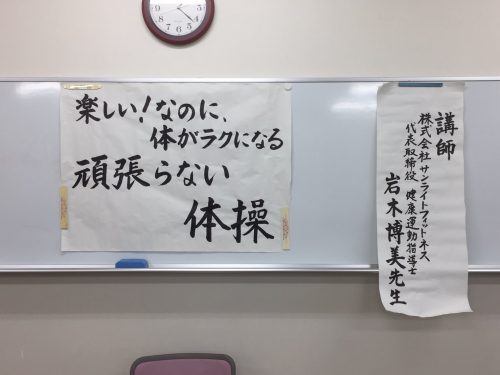 楽しい!なのに、
体がラクになる
頑張らない
体操
講師
株式会社 サンライトフィットネス
代表取締役 健康運動指導士
岩木博美先生